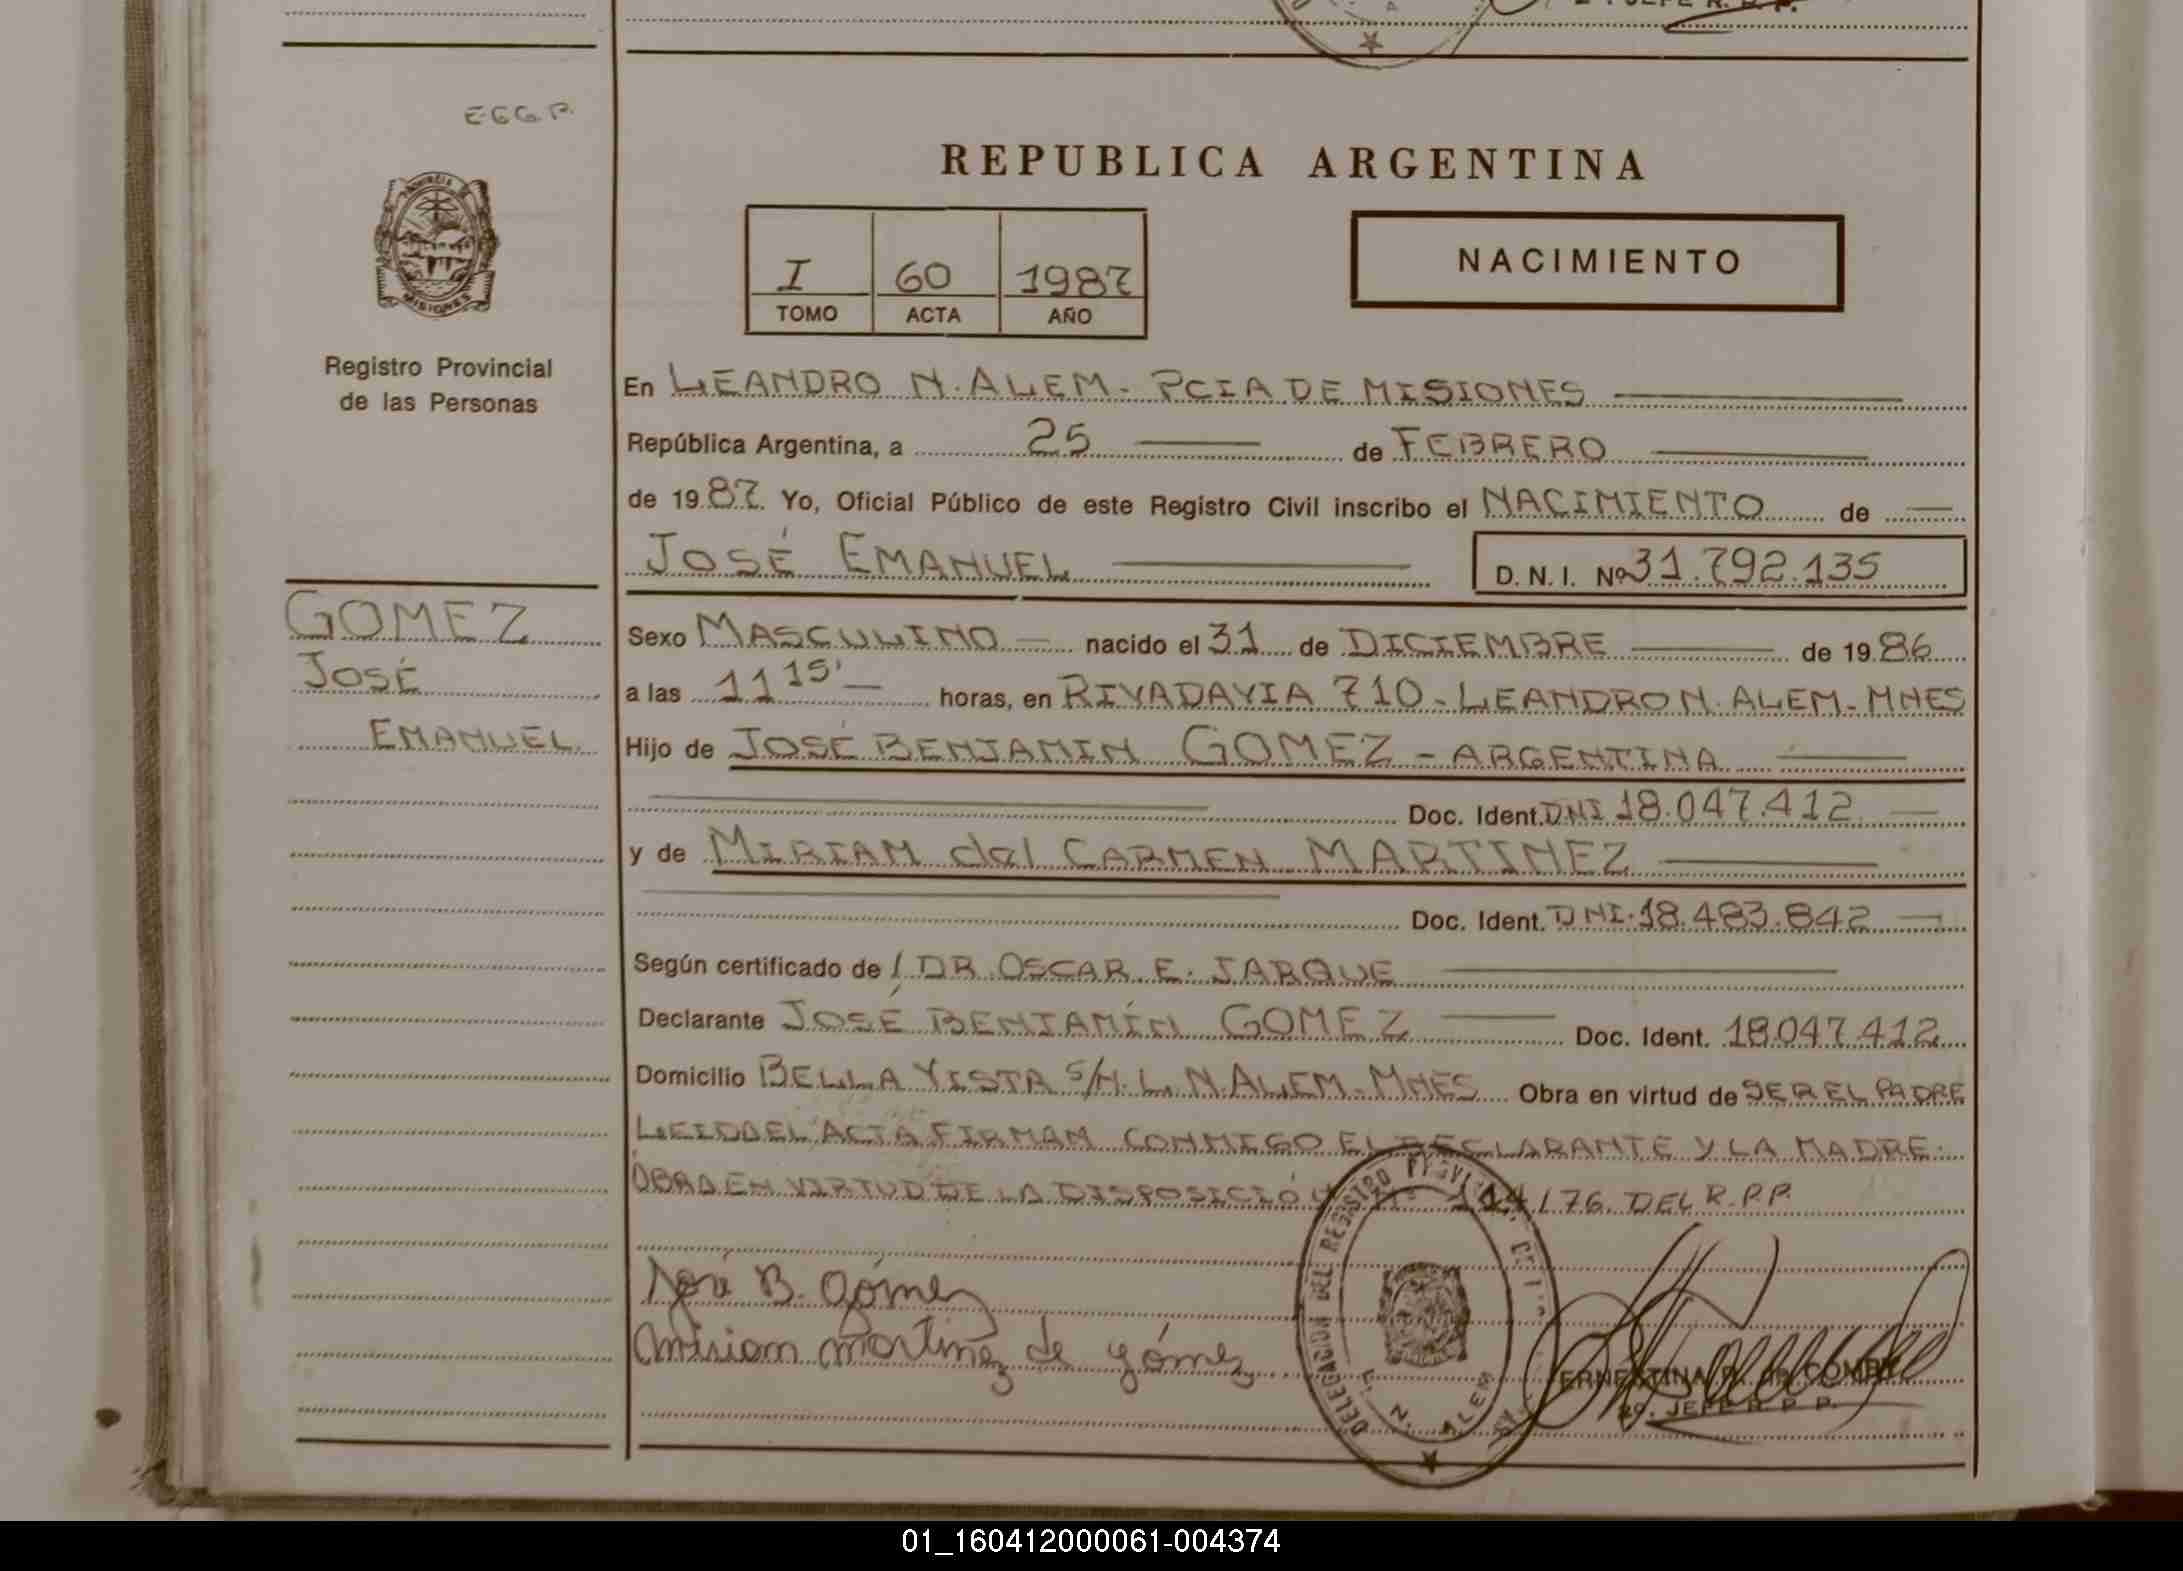 2º. JEFE R. P. P.
E G G P.
PROVINCIA DE
MISIONES
Registro Provincial
de las Personas
REPUBLICA ARGENTINA
I 60 1987
TOMO ACTA AÑO
NACIMIENTO
En LEANDRO N. ALEM - PCIA DE MISIONES
República Argentina, a 25 de FEBRERO
de 1987. Yo, Oficial Público de este Registro Civil inscribo el NACIMIENTO de
JOSÉ EMANUEL D. N. I. Nº 31.792.135
GOMEZ
JOSÉ
EMANUEL
Sexo MASCULINO nacido el 31 de DICIEMBRE de 1986
a las 11 15' horas, en RIVADAVIA 710 - LEANDRO N. ALEM - MNES
Hijo de JOSÉ BENJAMIN GOMEZ - ARGENTINA
Doc. Ident. DNI 18.047.412
y de MIRIAM del CARMEN MARTINEZ
Doc. Ident. DNI. 18.483.842
Según certificado de DR. OSCAR E. JARQUE
Declarante JOSÉ BENJAMÍN GOMEZ Doc. Ident. 18.047.412
Domicilio BELLA VISTA S/N. L. N. ALEM - MNES Obra en virtud de SER EL PADRE
LEIDA EL ACTA FIRMAN CONMIGO EL DECLARANTE Y LA MADRE.
OBRA EN VIRTUD DE LA DISPOSICIÓN 144/76 DEL R.P.P.
José B. Gómez
Miriam Martinez de Gómez
DELEGACION DEL REGISTRO
L. N. ALEM
ERNESTINA
2º. JEFE R. P. P.
01_160412000061-004374